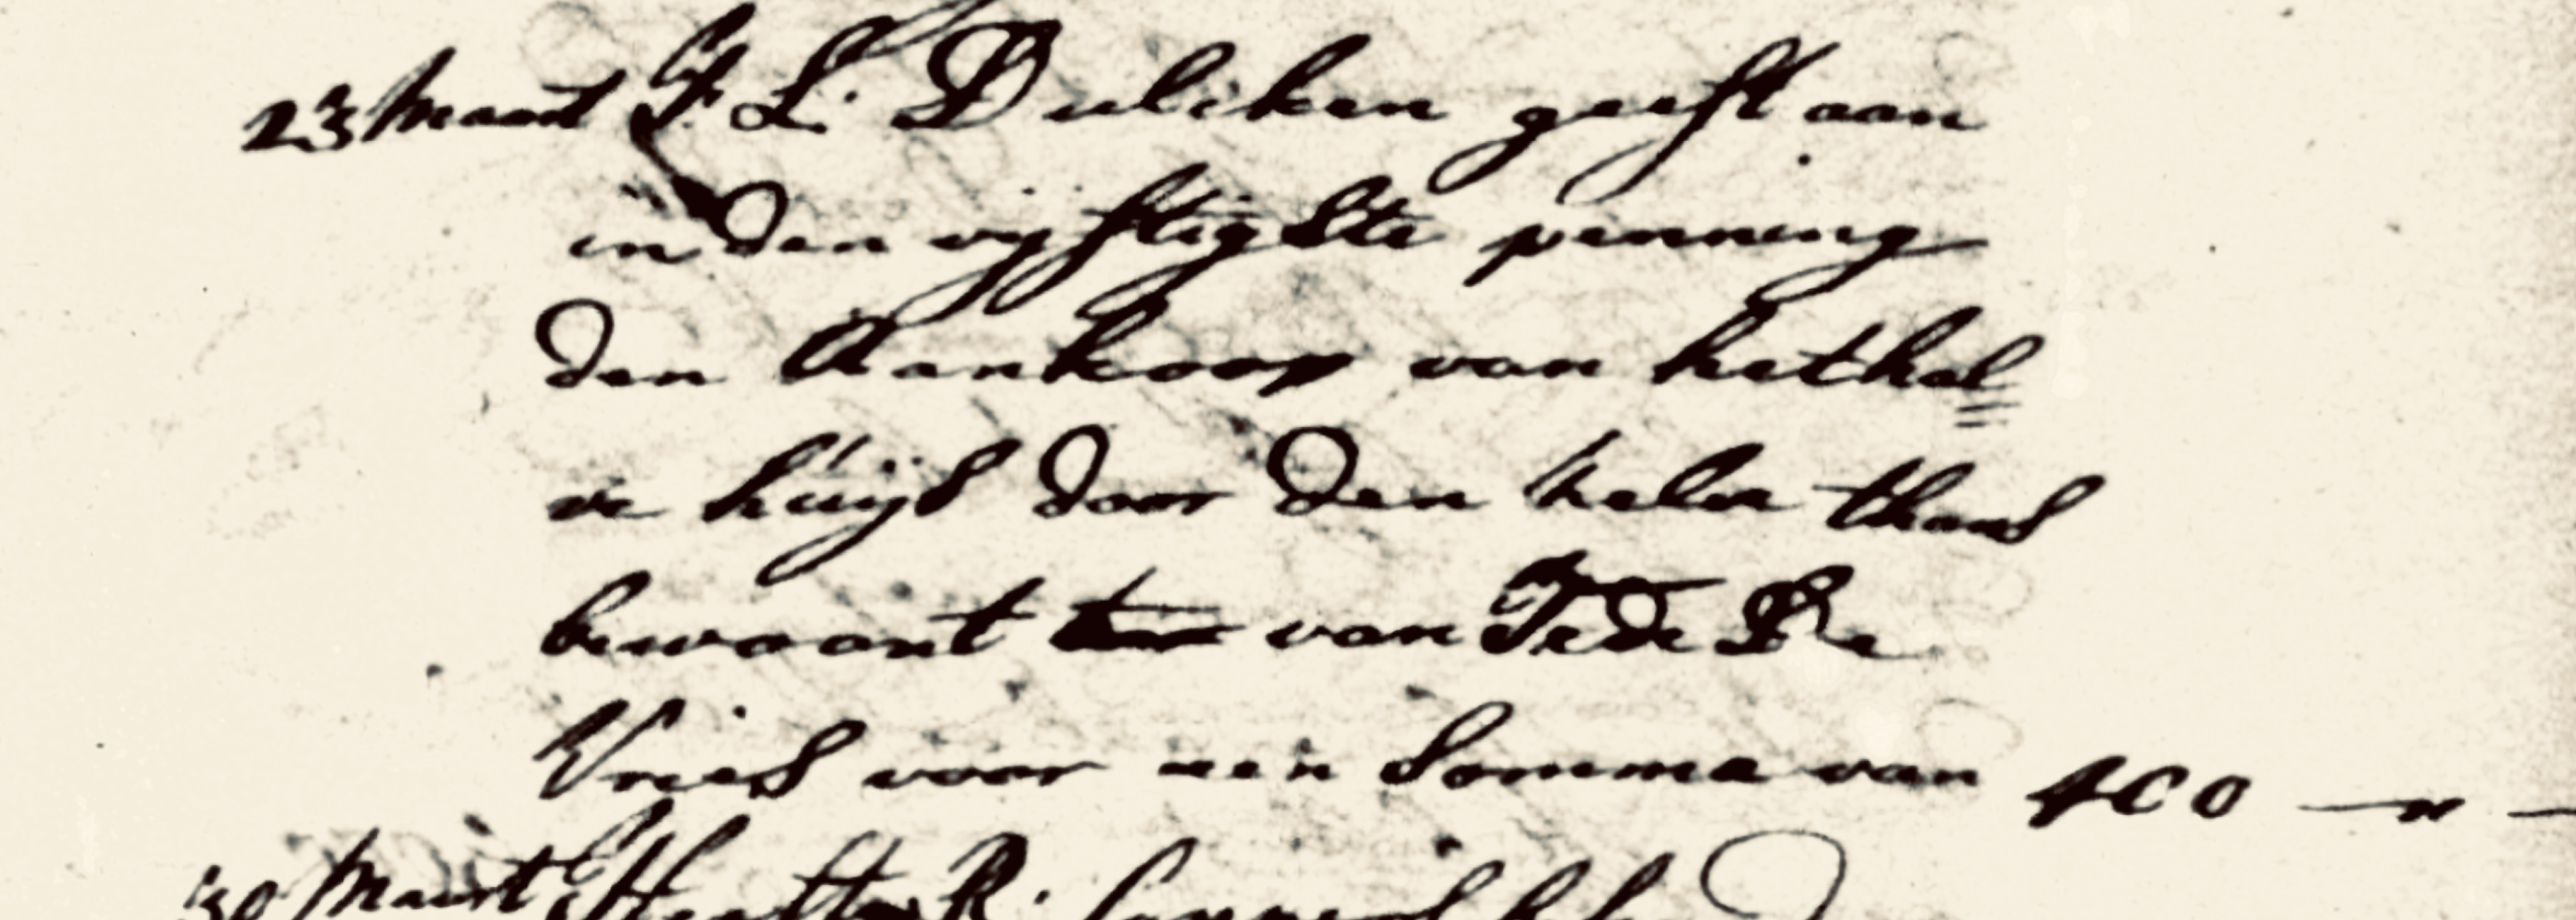 23 Maart F. L. Duliken geeft aan
in den vyftigste penning
den Aankoop van het hal=
ve huijs door den heler thans
bewoont van Fede De
Vries voor een Somma van 400 — " —
30 Maart